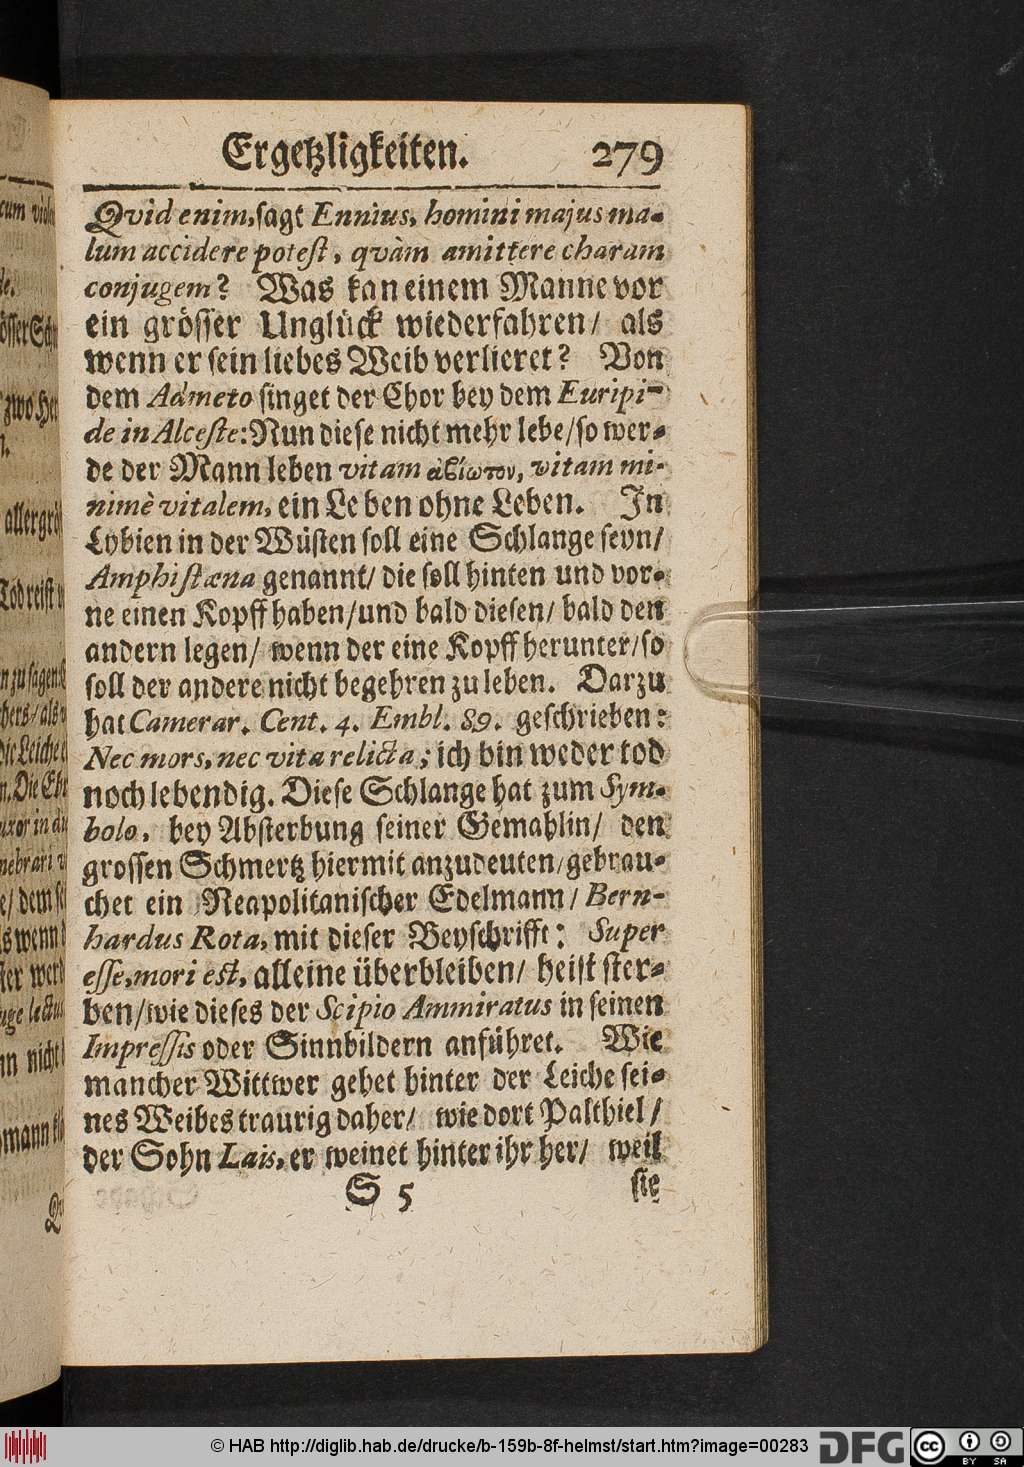 Ergetzligkeiten. 279
Qvid enim, sagt Ennius, homini majus ma-
lum accidere potest, qvàm amittere charam
conjugem? Was kan einem Manne vor
ein grösser Unglück wiederfahren/ als
wenn er sein liebes Weib verlieret? Von
dem Admeto singet der Chor bey dem Euripi-
de in Alceste: Nun diese nicht mehr lebe/ so wer-
de der Mann leben vitam ἀβίωτον, vitam mi-
nimè vitalem, ein Leben ohne Leben. In
Lybien in der Wüsten soll eine Schlange seyn/
Amphistæna genannt/ die soll hinten und vor-
ne einen Kopff haben/ und bald diesen/ bald den
andern legen/ wenn der eine Kopff herunter/ so
soll der andere nicht begehren zu leben. Darzu
hat Camerar. Cent. 4. Embl. 89. geschrieben:
Nec mors, nec vita relicta; ich bin weder tod
noch lebendig. Diese Schlange hat zum Sym-
bolo, bey Absterbung seiner Gemahlin/ den
grossen Schmertz hiermit anzudeuten/ gebrau-
chet ein Neapolitanischer Edelmann/ Bern-
hardus Rota, mit dieser Beyschrifft: Super
esse, mori est, alleine überbleiben/ heist ster-
ben/ wie dieses der Scipio Ammiratus in seinen
Impressis oder Sinnbildern anführet. Wie
mancher Wittwer gehet hinter der Leiche sei-
nes Weibes traurig daher/ wie dort Palthiel/
der Sohn Lais, er weinet hinter ihr her/ weil
S 5 sie
© HAB http://diglib.hab.de/drucke/b-159b-8f-helmst/start.htm?image=00283 DFG cc BY SA